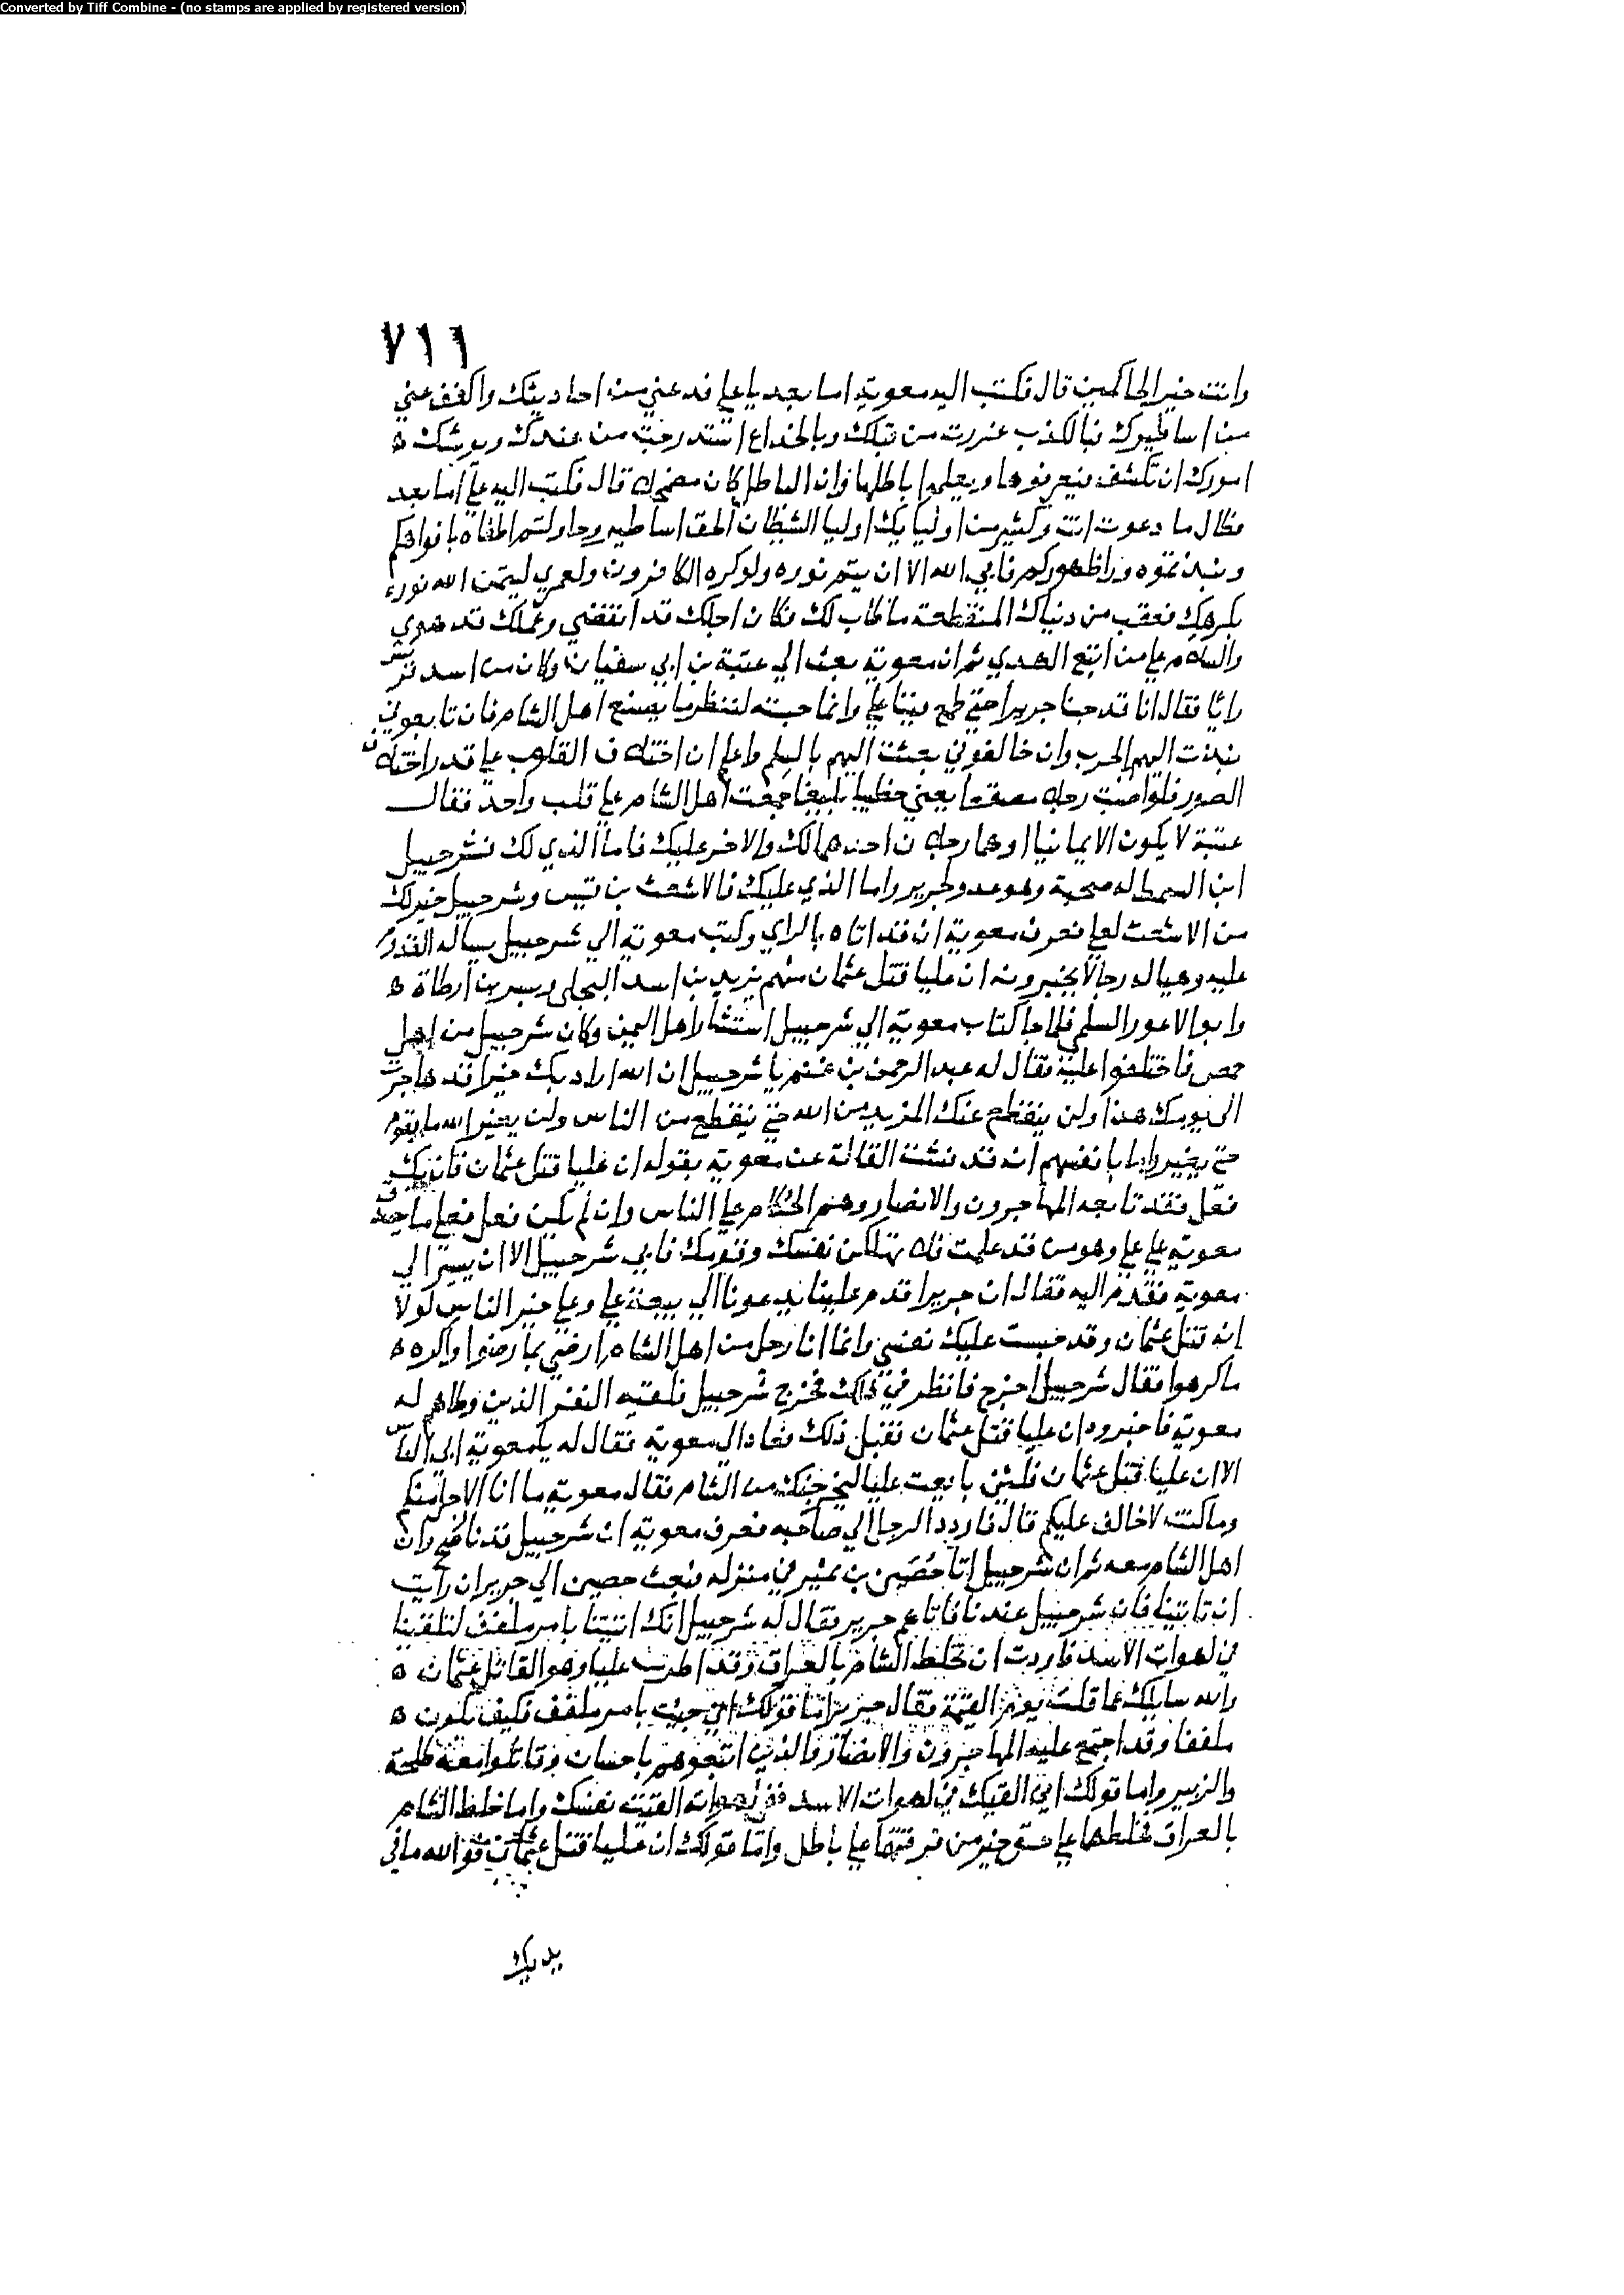 Converted by Tiff Combine - (no stamps are applied by registered version)
٧١١
وانت خير الحاكمين قال فكتب اليه معوية اما بعد يا علي فدعني من احاديثك واكفف عني
من اساطيرك فبالكذب غررت من قبلك وبالخداع استدرجت من عندك ويوشك ه
امورك ان تكشف فيعرفوها ويعلموا باطلها وان الباطل كان مضمحلا قال فكتب اليه علي اما بعد
فطال ما دعوت انت وكثير من اوليايك اوليا الشيطان الحق اساطير وحاولتم اطفاه بافواهكم
ونبذتموه ورا ظهوركم فابي الله الا ان يتم نوره ولو كره الكافرون ولعمري ليتمن الله نوره
بكرهك فعقب من دنياك المنقطعة ما طاب لك فكان اجلك قد انقضي وعملك قد هوي
والسلام علي من اتبع الهدي ثم ان معوية بعث الي عتبة بن ابي سفيان وكان من اسد قريش
رايا فقال انا قد حبسنا جريرا حتي طمع فينا علي وانما حبسته لننظر ما يصنع اهل الشام فان تابعوني
نبذت اليهم الحرب وان خالفوني بعثت اليهم بالسلم واعلم ان اختلاف القلوب علي قدر اختلاف
الصور فلو اصبت رجلا مصقعا يعني خطيبا بليغا جمعت اهل الشام علي قلب واحد فقال
عتبة لا يكون الا يمانيا وهما رجلان احدهما لك والاخر عليك فاما الذي لك فشرحبيل
ابن السمط له صحبة وهو عدو لجرير واما الذي عليك فالاشعث بن قيس وشرحبيل خير لك
من الاشعث لعلي فعرف معوية ان قد اتاه بالراي وكتب معوية الي شرحبيل يساله القدوم
عليه وهيا له رجالا يخبرونه ان عليا قتل عثمان منهم يزيد بن اسد البجلي وبسر بن ارطاة ه
وابو الاعور السلمي فلما جا كتاب معوية الي شرحبيل استشار اهل اليمن وكان شرحبيل من اهل
حمص فاختلفوا عليه فقال له عبد الرحمن بن غنم يا شرحبيل ان الله اراد بك خيرا قد هاجرت
الي يومك هذا ولن ينقطع عنك المزيد من الله حتي ينقطع من الناس ولن يغير الله ما بقوم
حتي يغيروا ما بانفسهم انه قد فشت القالة عن معوية بقوله ان عليا قتل عثمان فان يك
فعل فقد تابعه المهاجرون والانصار وهم الحكام علي الناس وان لم يكن فعل فعلي ما يصدق
معوية علي علي وهو من قد علمت فلا تهلكن نفسك وقومك فابي شرحبيل الا ان يسير الي
معوية فقدم اليه فقال ان جريرا قدم علينا يدعونا الي بيعة علي وعلي خير الناس لولا
انه قتل عثمان وقد حبست عليك نفسي وانما انا رجل من اهل الشام ارضي بما رضوا واكره ه
ما كرهوا فقال شرحبيل اخرج فانظر في ذلك فخرج شرحبيل فلقيه النفر الذين وطاهم له
معوية فاخبروه ان عليا قتل عثمان فقبل ذلك فعاد الي معوية فقال له يا معوية ابي الناس
الا ان عليا قتل عثمان فلئن بايعت عليا لنخرجنك من الشام فقال معوية ما انا الا رجل منكم
وما كنت لاخالف عليكم قال فاردد الرجل الي صاحبه فعرف معوية ان شرحبيل قد ناصح وان
اهل الشام معه ثم ان شرحبيل اتا حصين بن نمير في منزله فبعث حصين الي جرير ان رايت
ان تاتينا فان شرحبيل عندنا فاتاهم جرير فقال له شرحبيل انك اتيتنا بامر ملفف لتلقينا
في لهوات الاسد فاردت ان تخلط الشام بالعراق وقد اطريت عليا وهو القاتل عثمان ه
والله سايلك عما قلت يوم القيمة فقال جرير اما قولك اني جيت بامر ملفف فكيف يكون ه
ملففا وقد اجتمع عليه المهاجرون والانصار والذين اتبعوهم باحسان وقاتلوا معه طلحة
والزبير واما قولك اني القيك في لهوات الاسد ففي لهواته القيت نفسك واما خلط الشام
بالعراق فخلطها علي حق خير من فرقتها علي باطل واما قولك ان عليا قتل عثمان فوالله ما في
يديك